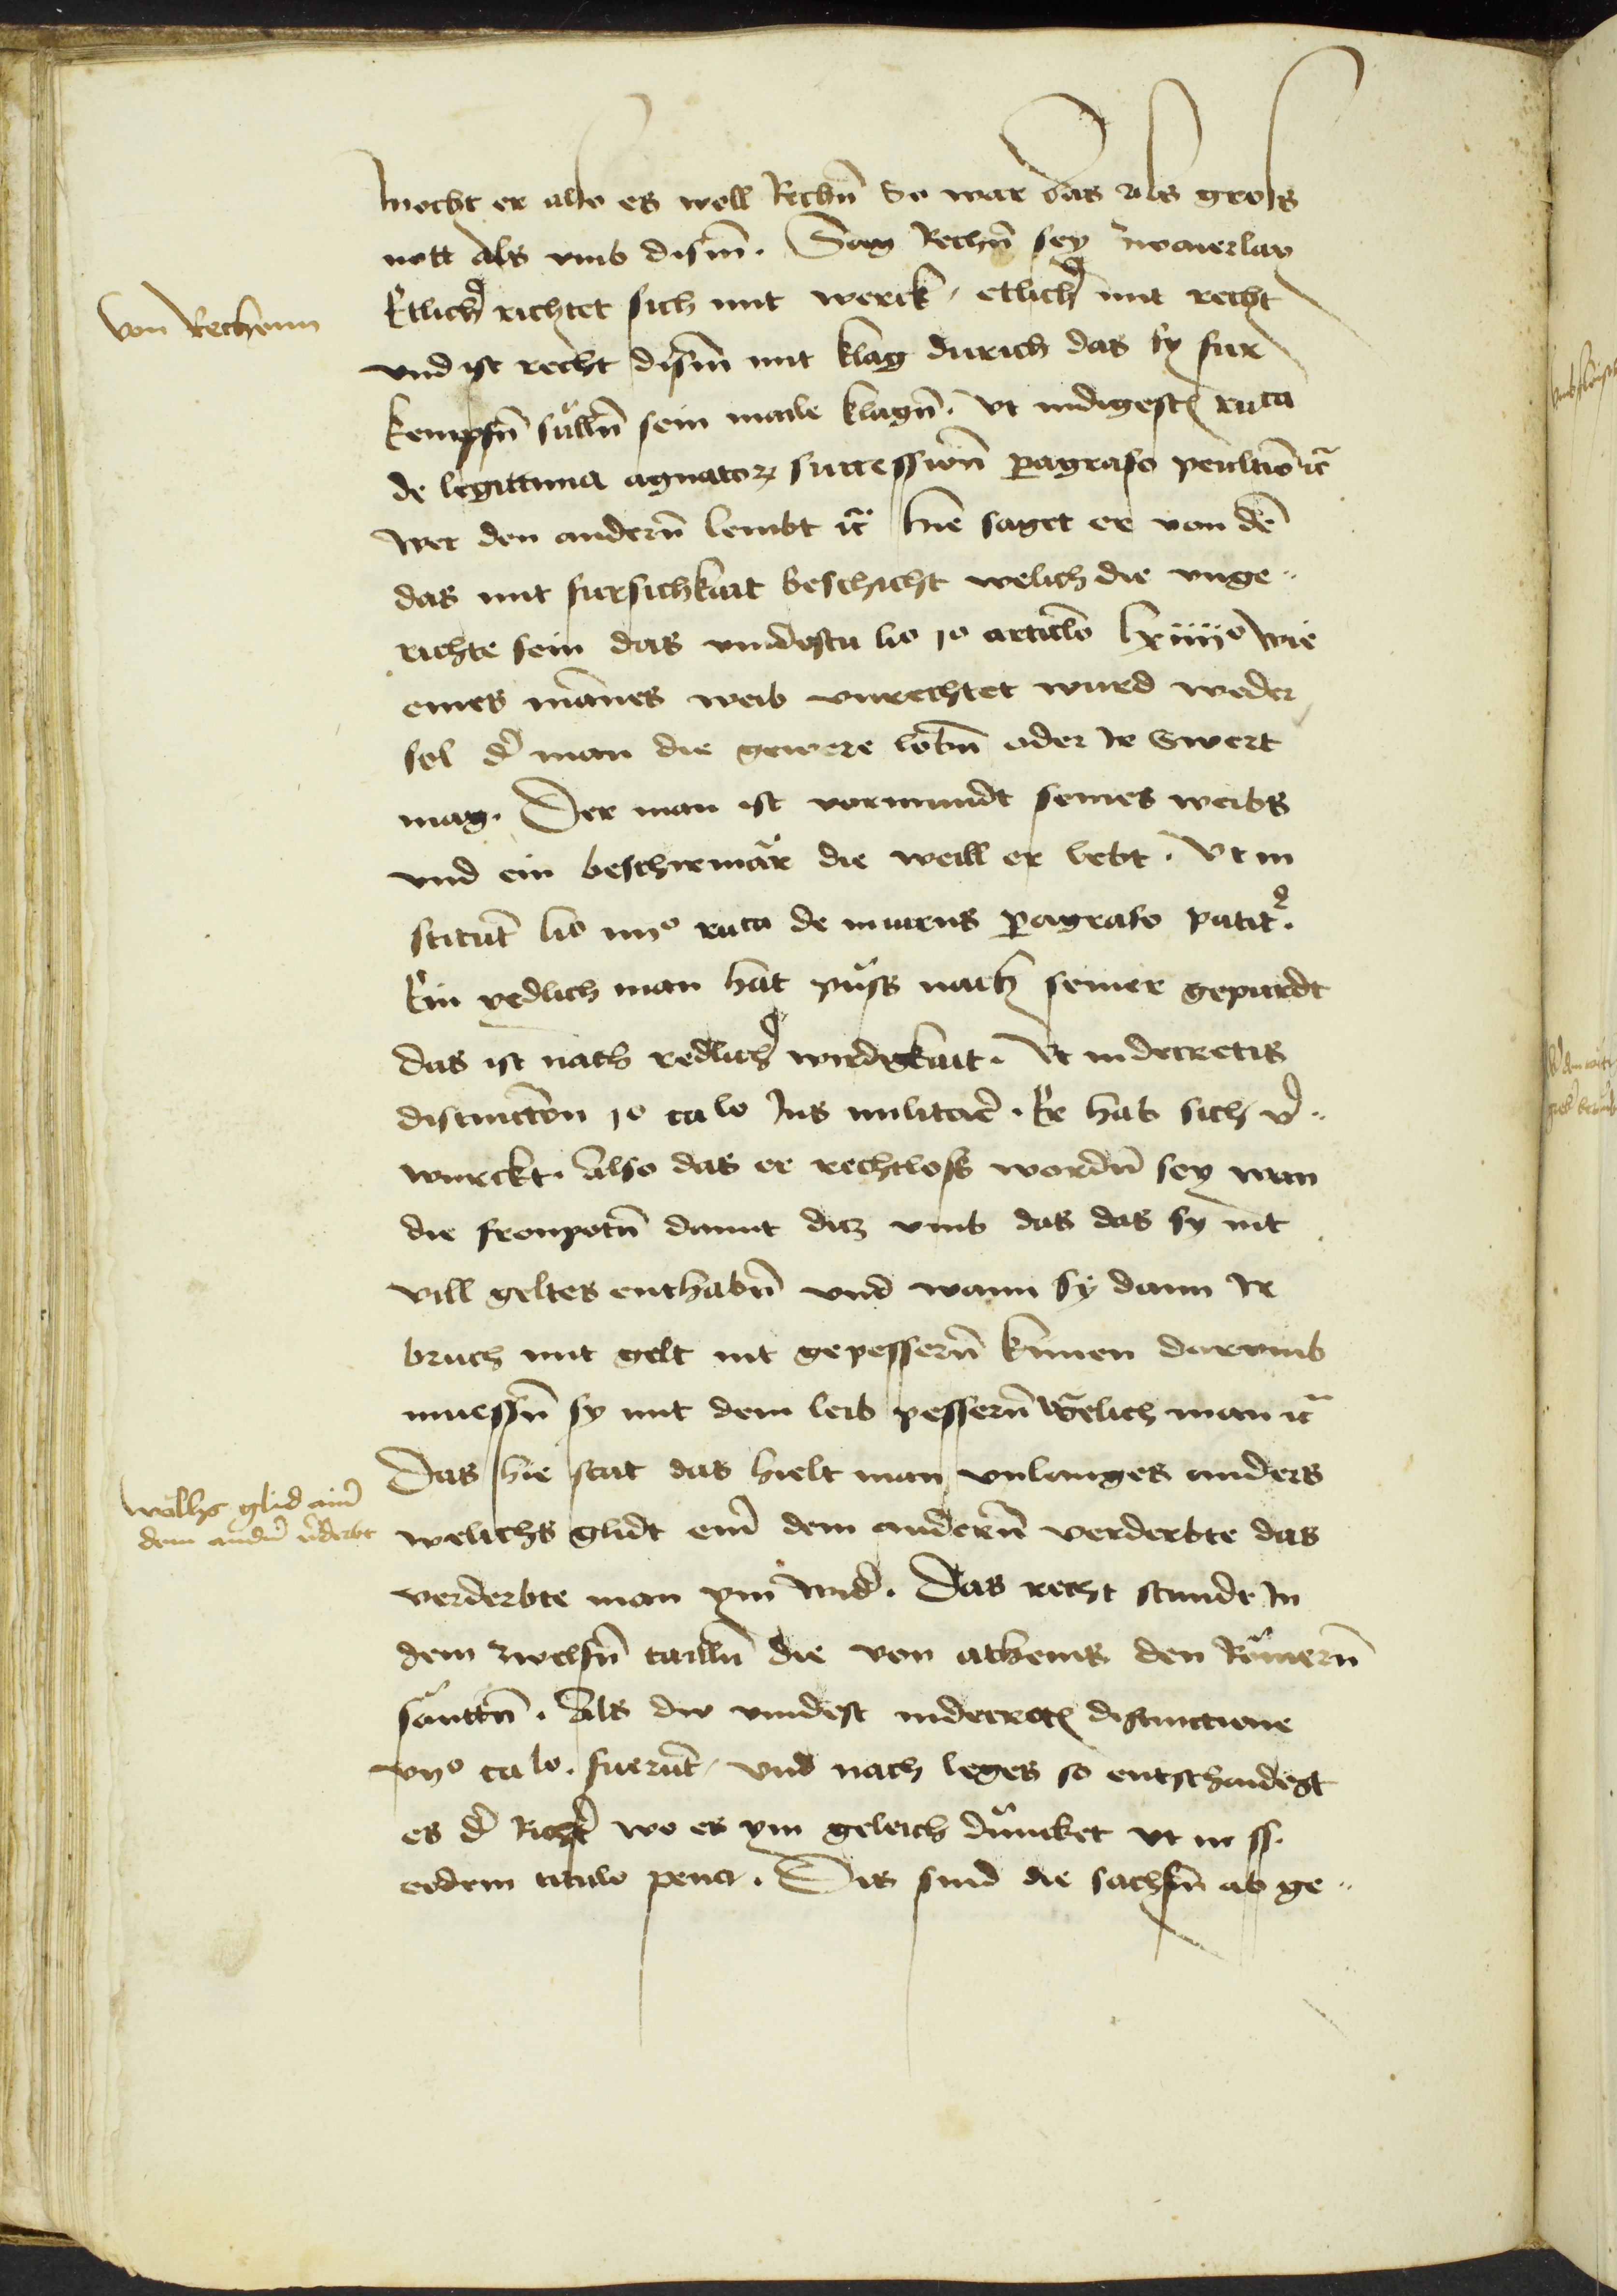 mocht er also es woll Rechn̄ So war das als gross
nott als vmb disin̄. Sag Rechn̄ sey zwaierlay
Etlichʼ richtet sich mit werck / etlichʼ mit recht
von Rechenn
vnd ist recht disin̄ mit klag durich das sy fur
kempfn̄ sülln̄ sein maile klagn̄. vt indigestʒ ruca
de legittima agnatoꝝ successionn̄ ꝑagrafo penltīo ꝛc̄
Wer den andern̄ lembt ꝛc̄ hie saget er von dē
das mit fursichkait beschicht welich die vnge-
richte sein das vindestu lio jo articulo lxiiiio wie
eines mānes weib vnrechtet wurd weder
sol dʼ man die gewere lobn̄ oder Ir Swert
mag. Der man ist vormundt seines weibs
vnd ein beschirmār die weill er lebt. Vt in
stitut̄ lib iiijo ruca de iniuriis ꝑagrafo patitʼ.
Ein redlich man hat puss nach seiner gepurdt
das ist nach redlichʼ wirdikait. Vt indecretis
distinctōn jo ca lo Jus militarē. Er hab sich vʼ-
wurckt. Also das er rechtloss wordn̄ sey wan
die fronpotn̄ damit dicz vmb das das sy nit
vill geltes enthabn̄ vnd wann sy dann Ir
bruch mit gelt nit gepessern̄ kunnen darvmb
muessn̄ sy mit dem leib pessern̄ Welich man ꝛc̄
Das hie stat das hielt man vnlanges anders
wellhs glid ainʼ
dem andn̄ vʼderbt
welichs glidt einʼ dem andern̄ verderbte das
verderbte man ym widʼ. Das recht stunde In
dem zwelfn̄ taiilln̄ die von athenis den Römern̄
säntten̄. Als dw vindest indecretʒ distinctione
vijo ca lo. fuerūt / vnd nach leges so entschaidegt
es dʼ Richtʼ wo es ym geleich düncket vt in ss.
eodem titulo pena. Dis sind die sachsn̄ ab ge-